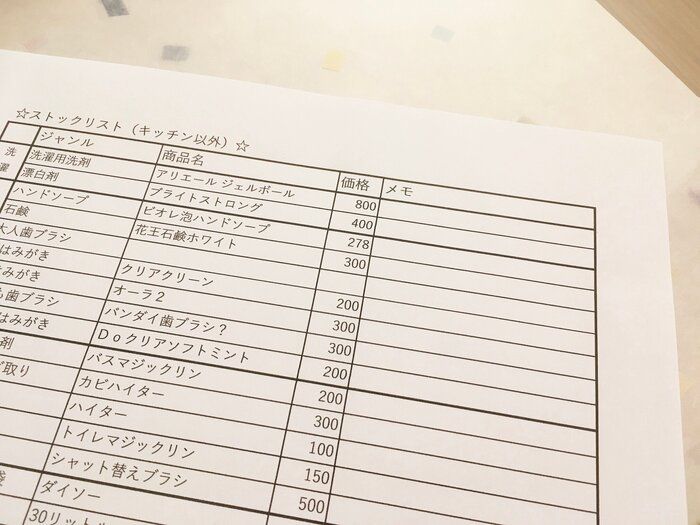 ☆ストックリスト（キッチン以外）☆
ジャンル 商品名 価格 メモ
洗濯 洗濯用洗剤 アリエール ジェルボール 800
漂白剤 ブライトストロング 400
ハンドソープ ビオレ泡ハンドソープ 278
石鹸 花王石鹸ホワイト 300
大人歯ブラシ
はみがき クリアクリーン 200
はみがき オーラ２ 300
歯ブラシ バンダイ歯ブラシ？ 300
はみがき Ｄｏクリアソフトミント 200
剤 バスマジックリン 200
取り カビハイター 300
ハイター 100
トイレマジックリン 150
シャット替えブラシ 500
袋 ダイソー
30リット